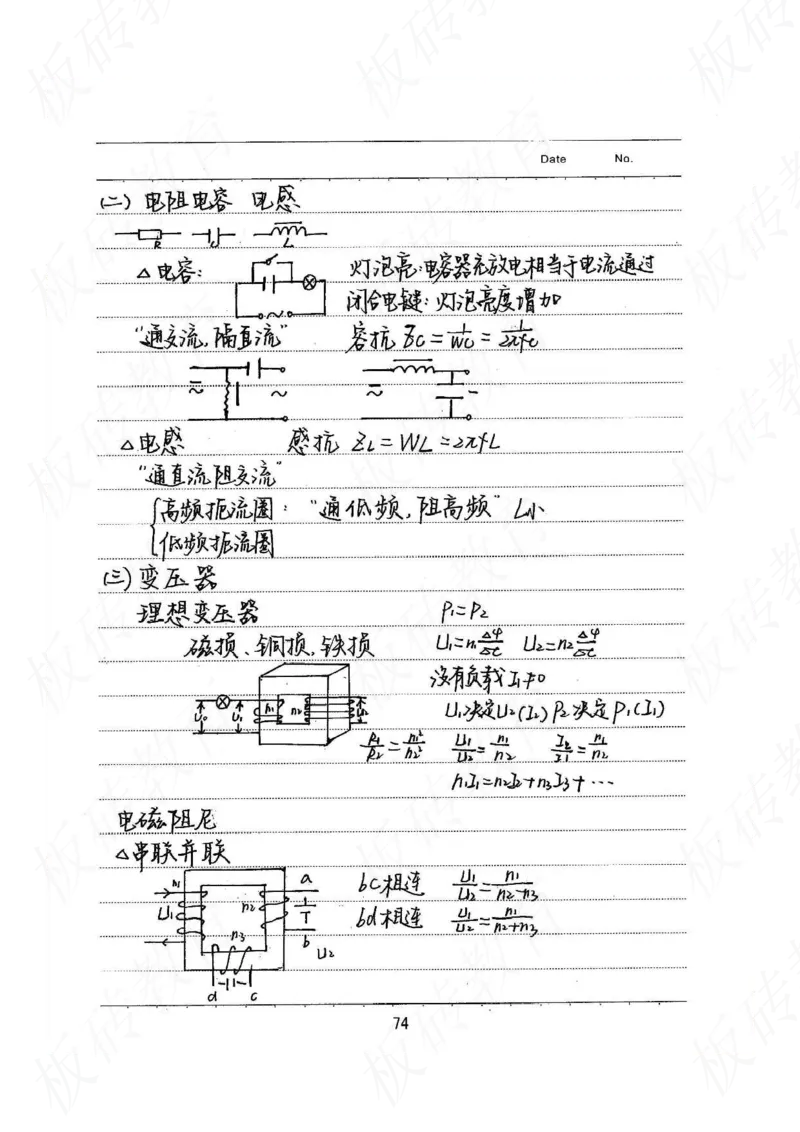 Date No.
(二) 电阻电容 电感
R C L
△电容: 灯泡亮:电容器充放电相当于电流通过
闭合电键: 灯泡亮度增加
"通交流,隔直流" 容抗 Zc = 1/Wc = 1/2πfc
△电感 感抗 ZL = WL = 2πfL
"通直流阻交流"
高频扼流圈: "通低频,阻高频" L小
低频扼流圈
(三) 变压器
理想变压器 P1=P2
磁损、铜损,铁损 U1=n1 Δφ/Δt U2=n2 Δφ/Δt
没有负载 I1≠0
U0 U1 n1 n2 U2 U1决定U2(I2) P2决定P1(I1)
R1/R2 = n1²/n2² U1/U2 = n1/n2 I2/I1 = n1/n2
n1I1=n2I2+n3I3+⋯
电磁阻尼
△串联并联
n1 U1 n2 n3 a b U2 d c
bc相连 U1/U2 = n1/n2-n3
bd相连 U1/U2 = n1/n2+n3
74
板砖教育